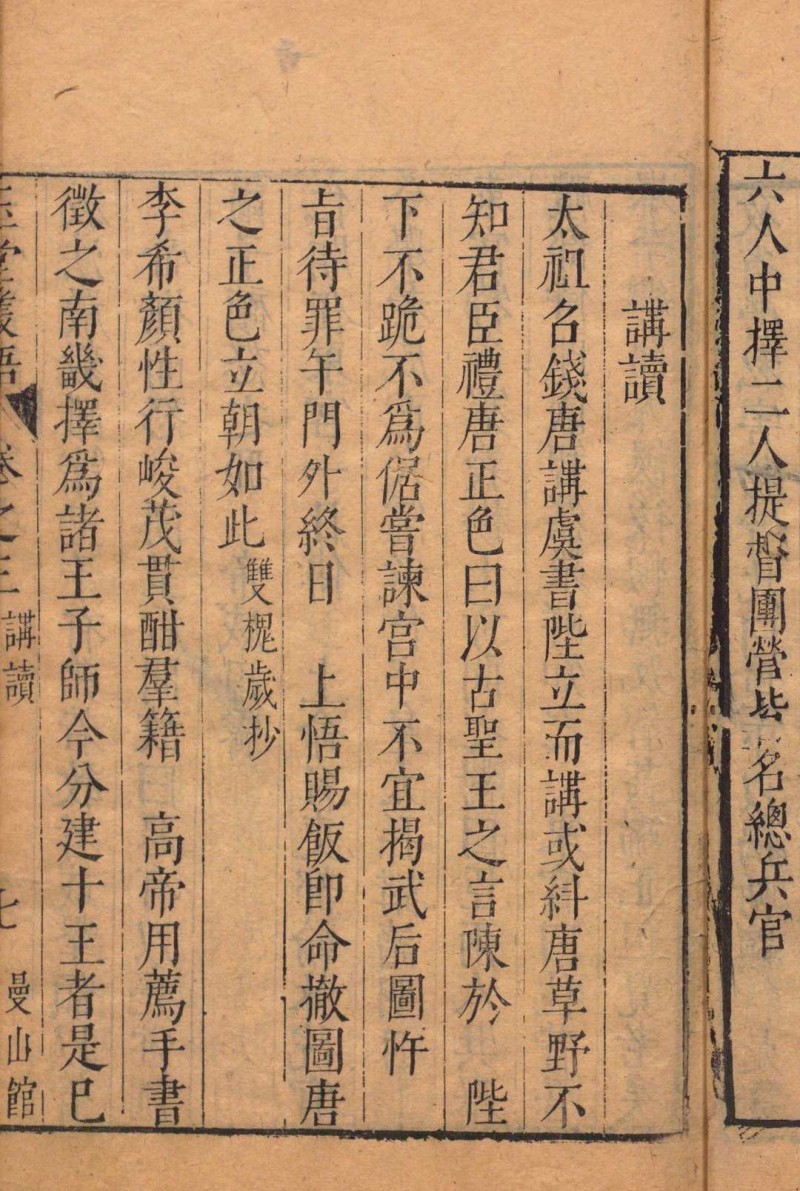 六人中擇二人提督團營皆名總兵官
講讀
太祖召錢唐講虞書陛立而講或糾唐草野不
知君臣禮唐正色曰以古聖王之言陳於　陛
下不跪不為倨嘗諫宮中不宜揭武后圖忤
旨待罪午門外終日　上悟賜飯即命撤圖唐
之正色立朝如此 雙槐歲抄
李希顏性行峻茂貫酣羣籍　高帝用薦手書
徵之南畿擇爲諸王子師今分建十王者是巳
玉堂叢語 卷之三 講讀 七 曼山館